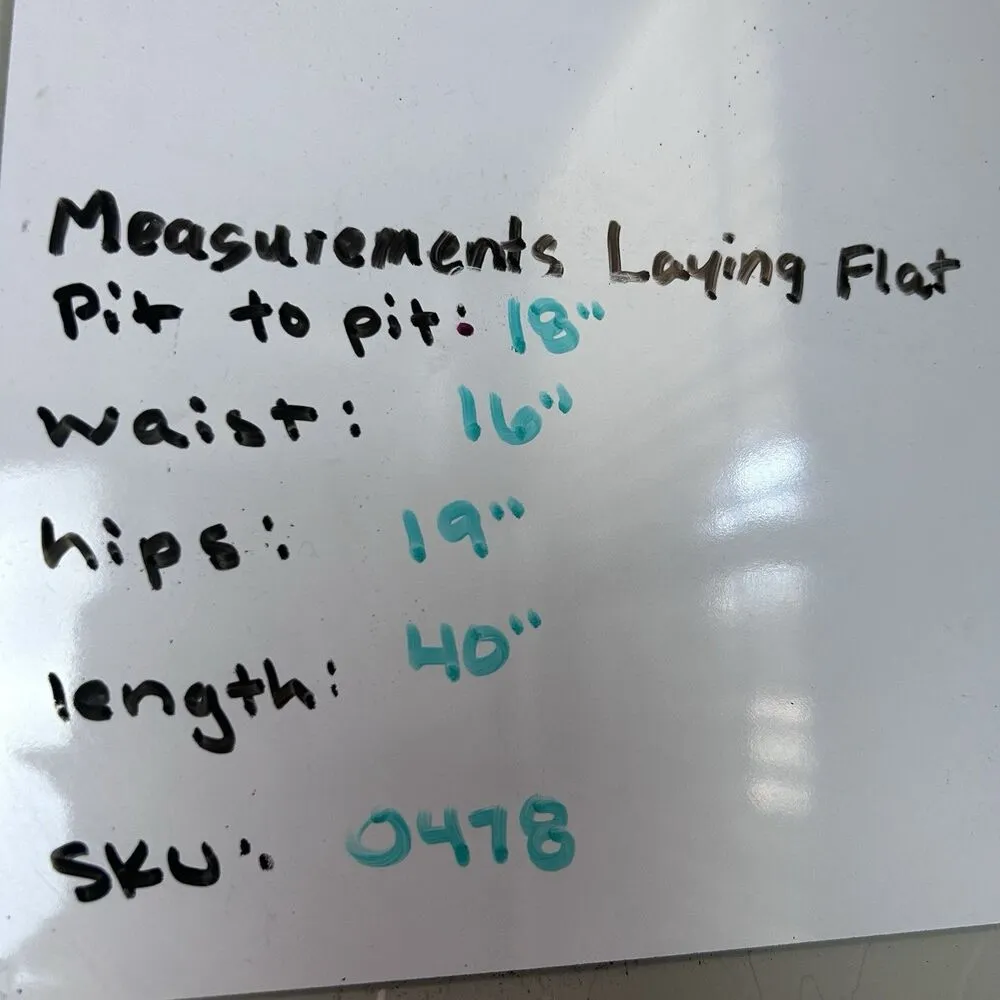 Measurements Laying Flat
Pit to pit: 18"
waist: 16"
hips: 19"
length: 40"
SKU: 0478